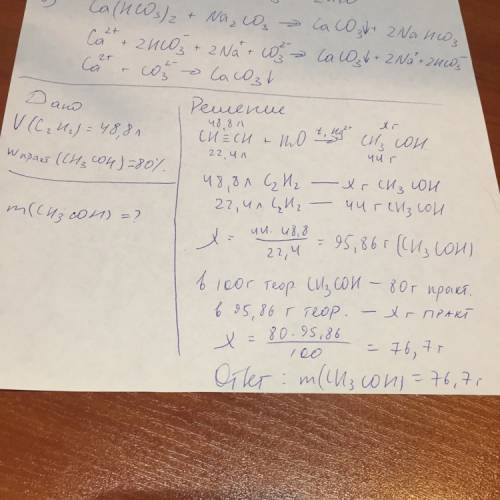 Ca(HCO₃)₂ + Na₂CO₃ → CaCO₃↓ + 2NaHCO₃
Ca²⁺ + 2HCO₃⁻ + 2Na⁺ + CO₃²⁻ → CaCO₃↓ + 2Na⁺ + 2HCO₃⁻
Ca²⁺ + CO₃²⁻ → CaCO₃↓
Дано
V(C₂H₂) = 48,8 л
Wпракт (CH₃COH) = 80%
m(CH₃COH) = ?
Решение
48,8 л x г
CH≡CH + H₂O t, Hg²⁺ → CH₃COH
22,4 л 44 г
48,8 л C₂H₂ — x г CH₃COH
22,4 л C₂H₂ — 44 г CH₃COH
X = 44 · 48,8 / 22,4 = 95,86 г (CH₃COH)
в 100 г теор CH₃COH — 80 г практ.
в 95,86 г теор. — x г практ
X = 80 · 95,86 / 100 = 76,7 г
Ответ: m(CH₃COH) = 76,7 г